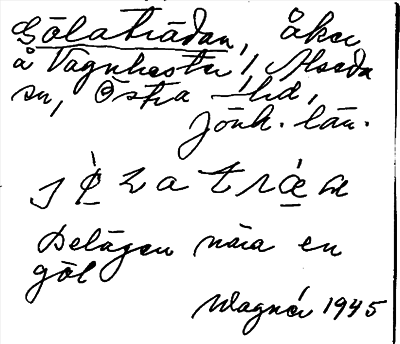 Gölaträdan, åker
å Vagnhester, Alseda
sn, Östra hd,
Jönk. län.
Belägen nära en
göl
Wagnér 1945